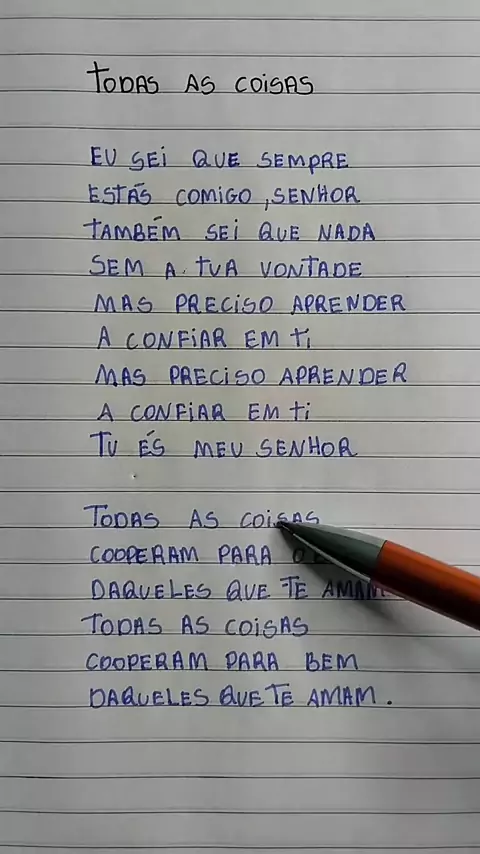 TODAS AS COISAS
EU SEI QUE SEMPRE
ESTÁS COMIGO, SENHOR
TAMBÉM SEI QUE NADA
SEM A TUA VONTADE
MAS PRECISO APRENDER
A CONFIAR EM TI
MAS PRECISO APRENDER
A CONFIAR EM TI
TU ÉS MEU SENHOR
TODAS AS COISAS
COOPERAM PARA
DAQUELES QUE TE AMAM
TODAS AS COISAS
COOPERAM PARA BEM
DAQUELES QUE TE AMAM.